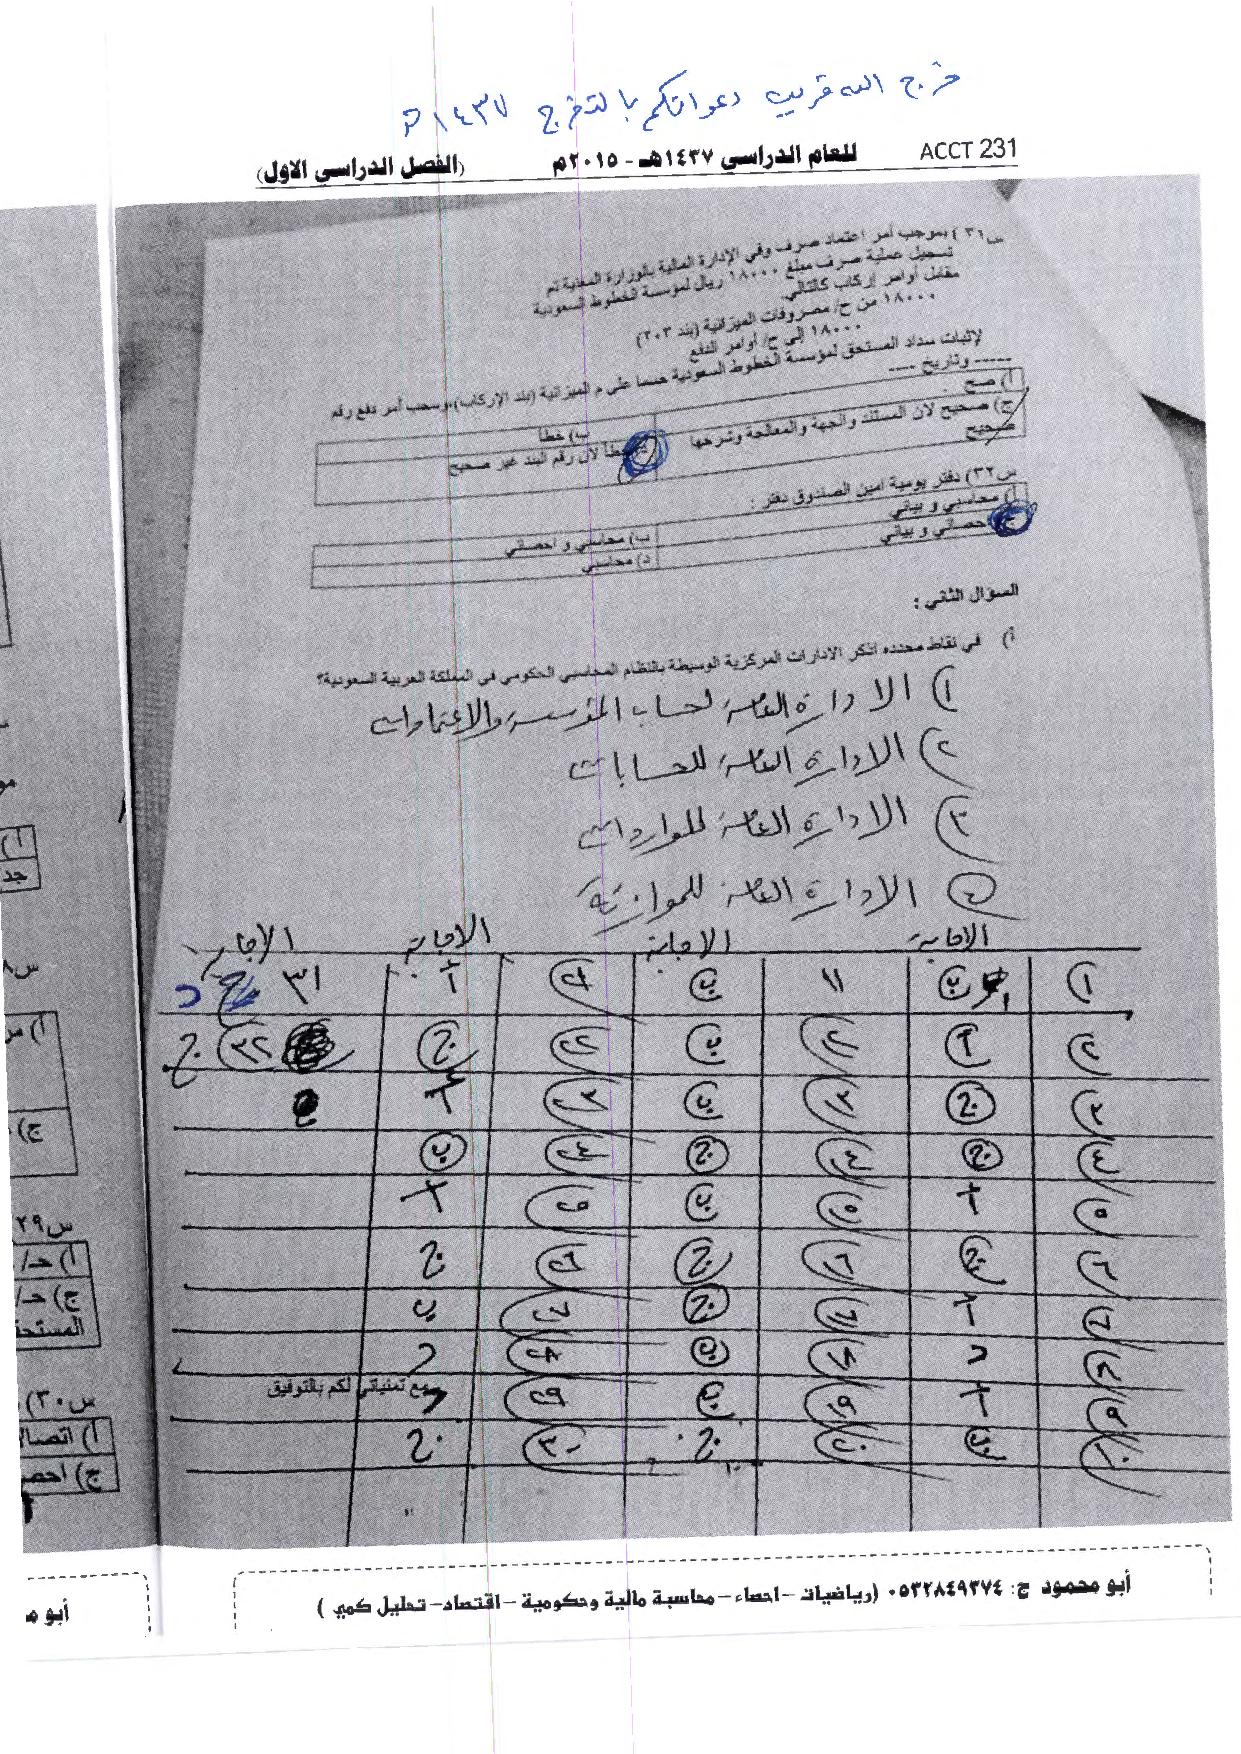 فرج الله قريب دعواتكم بالتخرج ١٤٣٧هـ
ACCT 231 للعام الدراسي ١٤٣٧هـ - ٢٠١٥م (الفصل الدراسي الاول)
س٣١) بموجب أمر اعتماد صرف وفي الإدارة المالية بالوزارة المعنية تم
تسجيل عملية صرف مبلغ ١٨٠٠٠ ريال لمؤسسة الخطوط السعودية
مقابل أوامر إركاب كالتالي:
١٨٠٠٠ من ح/ مصروفات الميزانية (بند ٢٠٣)
١٨٠٠٠ إلى ح/ أوامر الدفع
لإثبات سداد المستحق لمؤسسة الخطوط السعودية خصما على م الميزانية (بند الإركاب) بموجب أمر دفع رقم
----- وتاريخ ----
أ) صح
ب) خطا
ج) صحيح لان المستند والجهة والمعالجة وشرحها صحيح
خطأ لأن رقم البند غير صحيح
س٣٢) دفتر يومية امين الصندوق دفتر :
أ) محاسبي و بياني
ب) محاسبي و احصائي
ج) حصائي و بياني
د) محاسبي
السؤال الثاني :
أ) في نقاط محدده اذكر الادارات المركزية الوسيطة بالنظام المحاسبي الحكومي في المملكة العربية السعودية؟
١) الادارة العامة لحساب المؤسسة والاعتمادات
٢) الادارة العامة للحسابات
٣) الادارة العامة للواردات
٤) الادارة العامة للموازنة
الاجابة الاجابة الاجابة الاجابة
١ ب ١١ ب ٢١ أ ٣١ د
٢ أ ١٢ ب ٢٢ ج ٣٢ ج
٣ ج ١٣ ب ٢٣ أ
٤ ج ١٤ ج ٢٤ ب
٥ أ ١٥ ب ٢٥ أ
٦ ج ١٦ ج ٢٦ ج
٧ أ ١٧ ج ٢٧ ب
٨ د ١٨ ب ٢٨ د
٩ أ ١٩ ب ٢٩ د
١٠ ب ٢٠ ج ٣٠ ج
مع تمنياتي لكم بالتوفيق
أبو محمود ج: ٠٥٣٢٨٤٩٣٧٤ (رياضيات - احصاء - محاسبة مالية وحكومية - اقتصاد - تحليل كمي )
س٢٩
أ) د/
ج) د/
س٣٠)